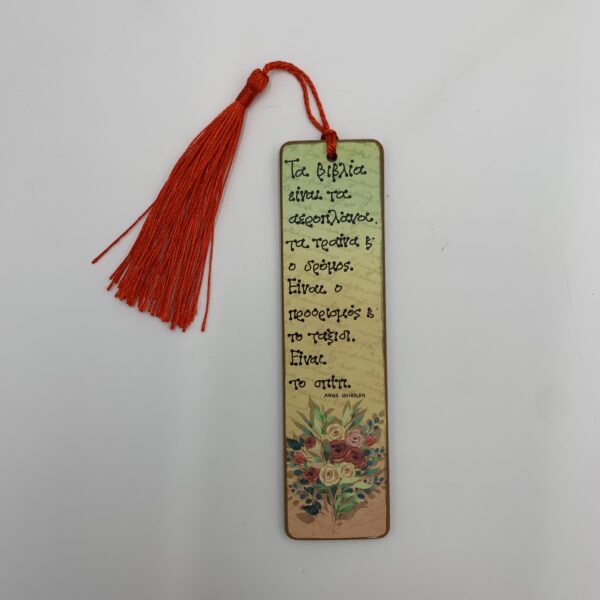 Τα βιβλία
είναι τα
αεροπλάνα,
τα τραίνα &
ο δρόμος.
Είναι ο
προορισμός &
το ταξίδι.
Είναι
το σπίτι.
ANNA QUINDLEN